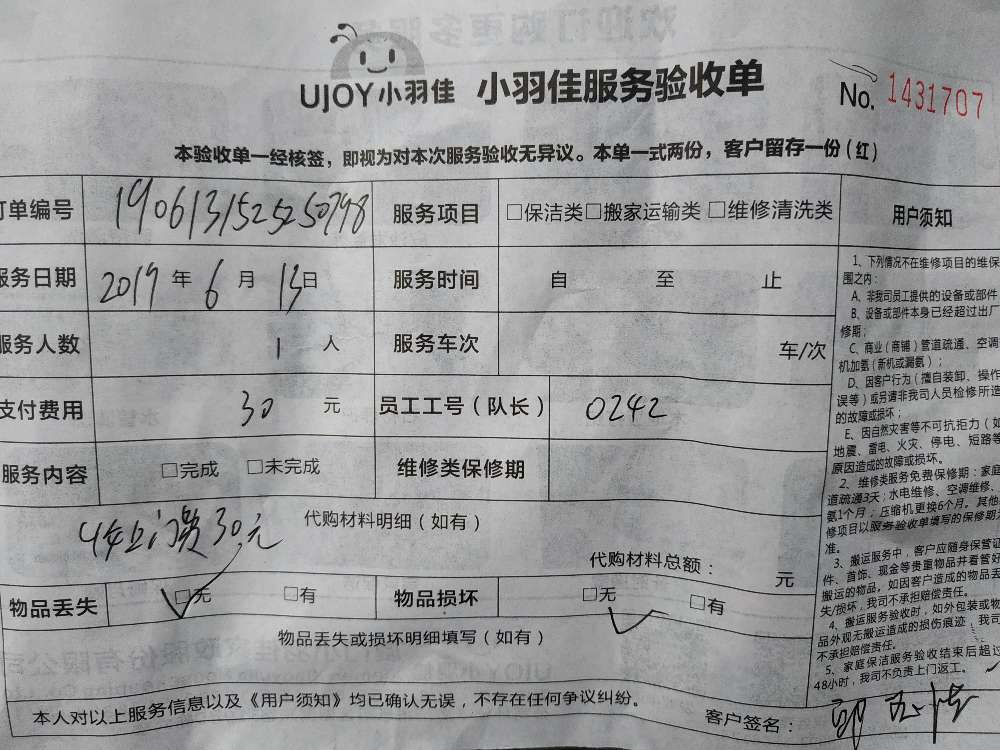 UJOY小羽佳 小羽佳服务验收单 No. 1431707
本验收单一经核签，即视为对本次服务验收无异议。本单一式两份，客户留存一份（红）
订单编号 190613152525079​8 服务项目 □保洁类□搬家运输类 □维修清洗类 用户须知
服务日期 2019 年 6 月 13 日 服务时间 自 至 止
服务人数 1 人 服务车次 车/次
支付费用 30 元 员工工号（队长） 0242
服务内容 □完成 □未完成 维修类保修期
代购材料明细（如有）
上门费30元
代购材料总额： 元
物品丢失 □无 □有 物品损坏 □无 □有
物品丢失或损坏明细填写（如有）
本人对以上服务信息以及《用户须知》均已确认无误，不存在任何争议纠纷。
客户签名：
1、下列情况不在维修项目的维保
围之内：
A、非我司员工提供的设备或部件
B、设备或部件本身已经超过出厂
修期；
C、商业（商铺）管道疏通、空调
机加氨（新机或漏氨）；
D、因客户行为（擅自装卸、操作
误等）或另请非我司人员检修所造
的故障或损坏；
E、因自然灾害等不可抗拒力（如
地震、雷电、火灾、停电、短路等
原因造成的故障或损坏。
2、维修类服务免费保修期：家庭
道疏通3天；水电维修、空调维修、
氨1个月；压缩机更换6个月。其他
修项目以服务验收单填写的保修期为
准。
3、搬运服务中，客户应随身保管证
件、首饰、现金等贵重物品并看管好
搬运的物品。如因客户造成的物品丢
失/损坏，我司不承担赔偿责任。
4、搬运服务验收时，如外包装或物
品外观无搬运造成的损伤痕迹，我司
不承担赔偿责任。
5、家庭保洁服务验收结束后超过
48小时，我司不负责上门返工。